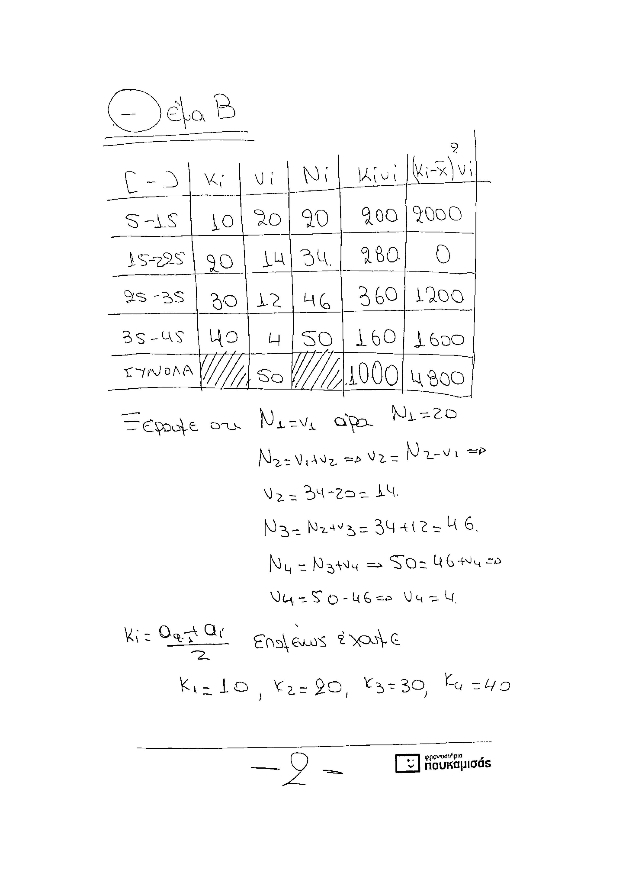 Θέμα Β
[ - ) Κi Vi Νi Κiνi (Κi-x̄)²νi
5-15 10 20 20 200 2000
15-25 20 14 34 280 0
25-35 30 12 46 360 1200
35-45 40 4 50 160 1600
ΣΥΝΟΛΑ 50 1000 4800
Ξέρουμε οτι Ν1=ν1 άρα Ν1=20
Ν2=ν1+ν2 ⇒ ν2=Ν2-ν1 ⇒
ν2=34-20=14.
Ν3=Ν2+ν3=34+12=46.
Ν4=Ν3+ν4 ⇒ 50=46+ν4 ⇒
ν4=50-46 ⇒ ν4=4.
Επομένως έχουμε
Κ1=10, Κ2=20, Κ3=30, Κ4=40
-2-
φροντιστήρια
πουκαμισάς